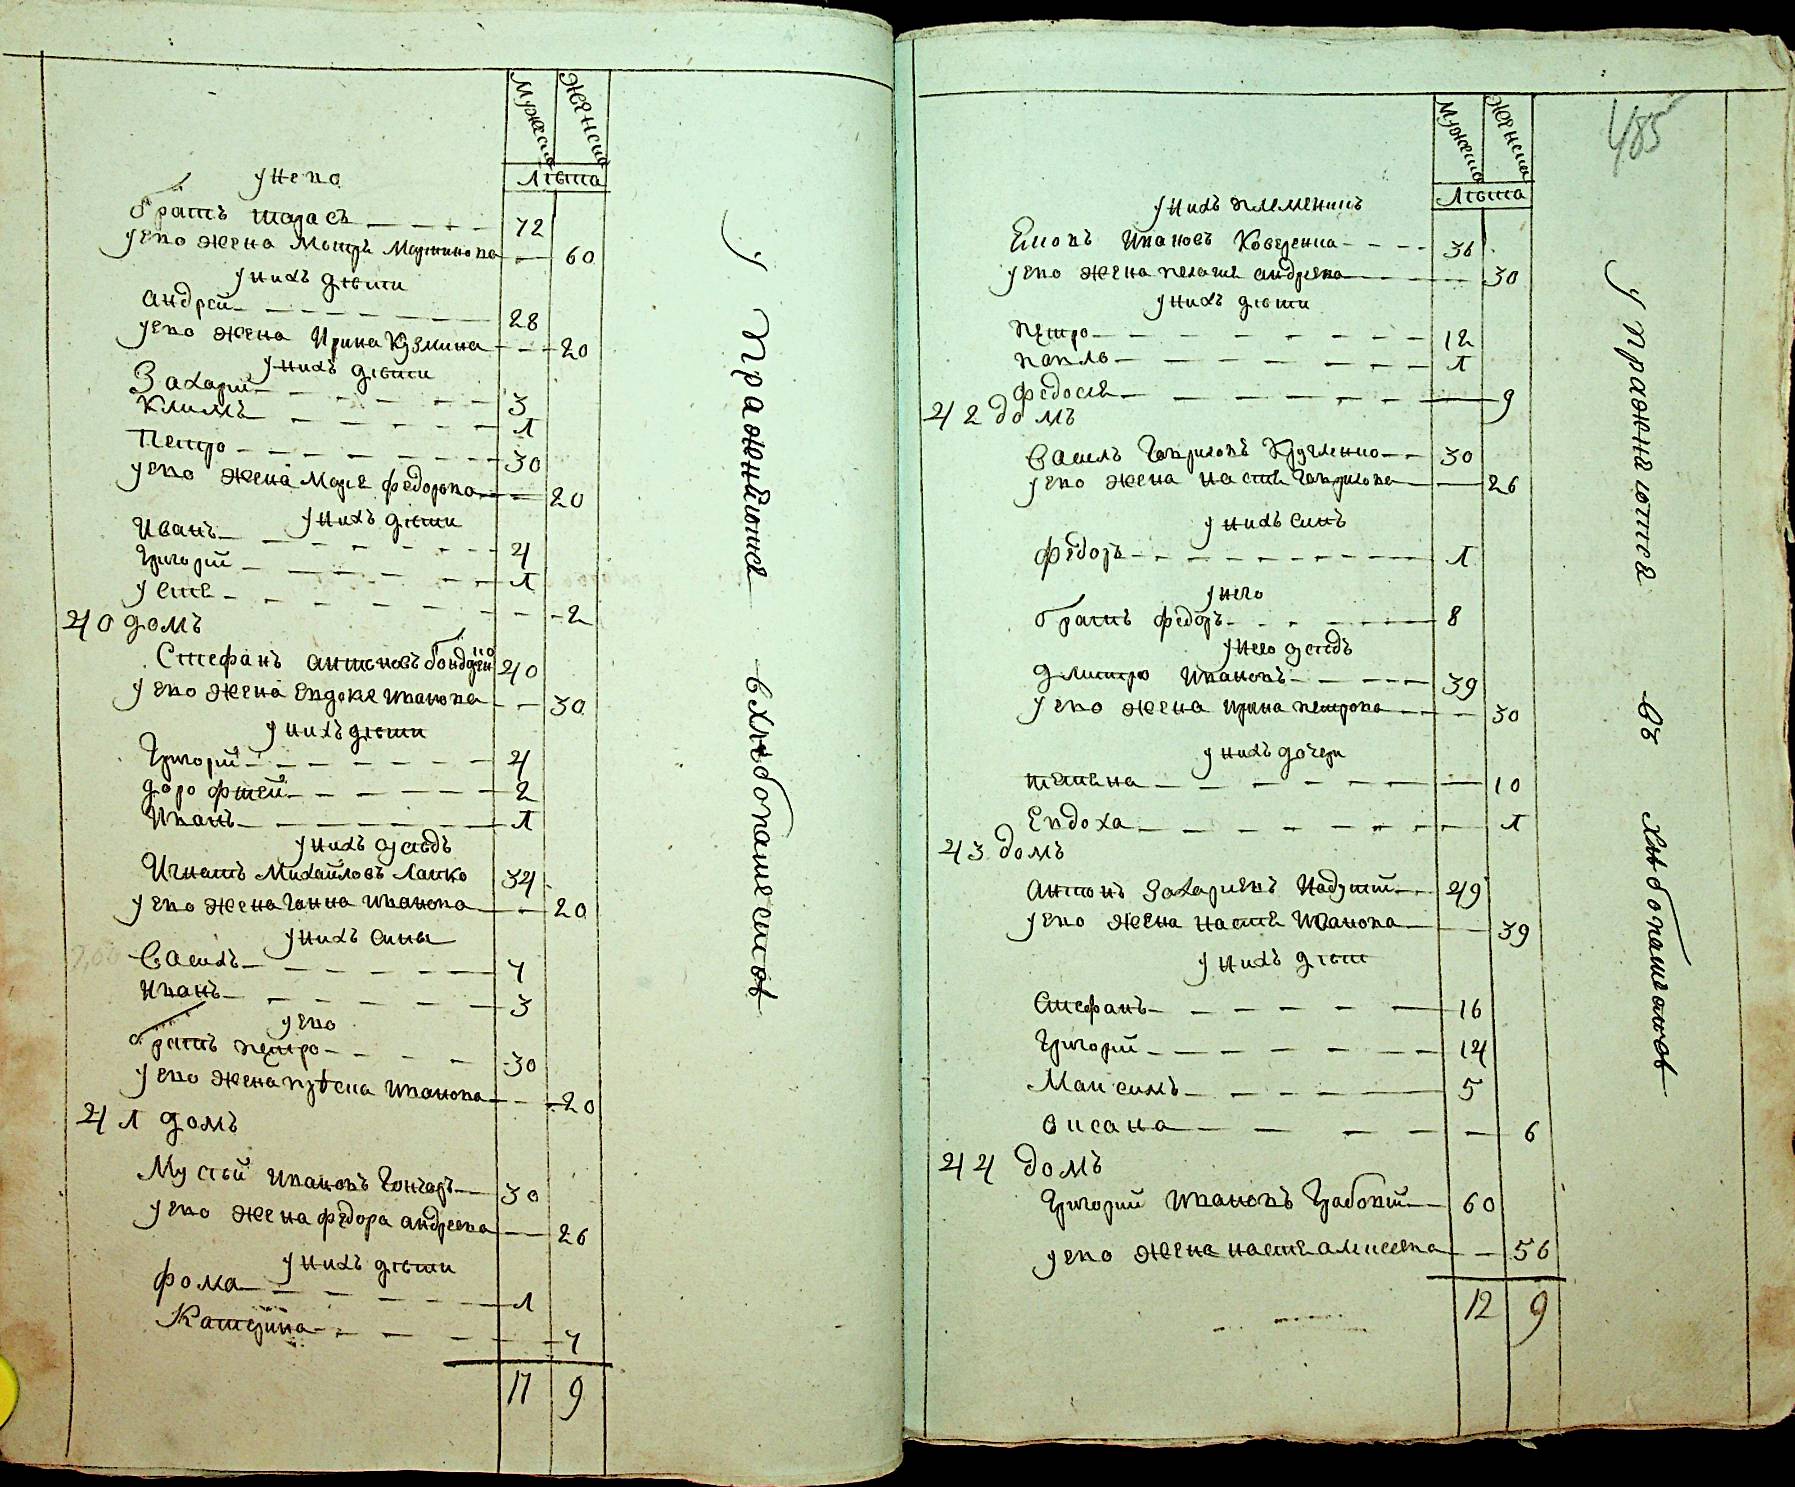 Мужеска Женска
Лѣта
у него
братъ Тарасъ 72
у его жена Мотря Мартинова 60
у нихъ дѣти
Андрей 28
у его жена Ирина Кузмина 20
у нихъ дѣти
Захарий 3
Климъ 1
Петро 30
у его жена Маря Федорова 20
у нихъ дѣти
Иванъ 4
Григорий 1
Устя 2
40 домъ
Стефанъ Антоновъ 40
у его жена Евдокия Иванова 30
у нихъ дѣти
Григорий 4
Дорофтей 2
Иванъ 1
у нихъ сусѣдъ
Игнатъ Михайловъ Лапко 34
у его жена Ганна Иванова 20
у нихъ сины
Василь 7
Иванъ 3
у его
братъ Петро 30
у его жена Иванова 20
41 домъ
Мусѣй Ивановъ Гончаръ 30
у его жена Федора Андреева 26
у нихъ дѣти
Фома 1
Катерина 7
17 9
Упражняются в хлѣбопашествѣ
485
Мужеска Женска
Лѣта
у нихъ племеникъ
Ивановъ Коверенка 36
у его жена Пелагея Андреева 30
у нихъ дѣти
Петро 12
Павло 1
Федося 9
42 домъ
Василь Гавриловъ Кругленко 30
у его жена Настя Гаврилова 26
у нихъ синъ
Федоръ 1
у него
братъ Федоръ 8
у него сусѣдъ
Дмитро Ивановъ 39
у его жена Ирина Петрова 30
у нихъ дочери
Татьяна 10
Евдоха 1
43 домъ
Антонъ Захариевъ 49
у его жена Настя Иванова 39
у нихъ дѣти
Стефанъ 16
Григорий 14
Максимъ 5
Оксана 6
44 домъ
Григорий Ивановъ Грабовий 60
у его жена Настя Алисеева 56
12 9
Упражняются въ хлѣбопашествѣ